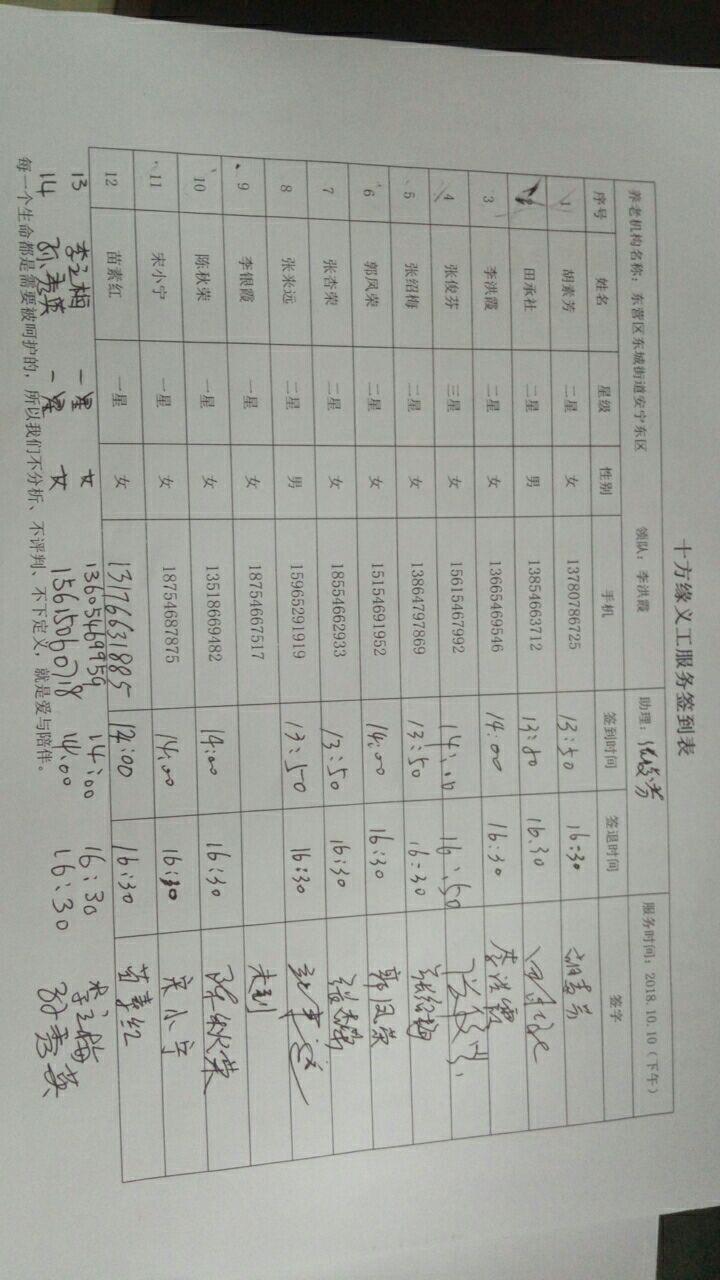 十方缘义工服务签到表
养老机构名称：东营区东城街道安宁东区 领队：李洪霞 助理：张俊芬 服务时间：2018.10.10（下午）
序号 姓名 星级 性别 手机 签到时间 签退时间 签字
1 胡素芳 二星 女 13780786725 13:50 16:30
2 田承社 二星 男 13854663712 13:50 16:30 田承社
3 李洪霞 二星 女 13665469546 14:00 16:30 李洪霞
4 张俊芬 三星 女 15615467992 14:00 16:50 张俊芬
5 张绍梅 二星 女 13864797869 13:50 16:30 张绍梅
6 郭凤荣 二星 女 15154691952 14:00 16:30 郭凤荣
7 张杏荣 二星 女 18554662933 13:50 16:30 张杏荣
8 张来远 二星 男 15965291919 13:50 16:30 张来远
9 李银霞 一星 女 18754667517 未到
10 陈秋荣 一星 女 13518669482 14:00 16:30 陈秋荣
11 宋小宁 一星 女 18754687875 14:00 16:30 宋小宁
12 苗素红 一星 女 13176631885 14:00 16:30 苗素红
13 李立梅 一星 女 13605469959 14:00 16:30 李立梅
14 一星 女 15615060718 14:00 16:30
每一个生命都是需要被呵护的，所以我们不分析、不评判、不下定义，就是爱与陪伴。